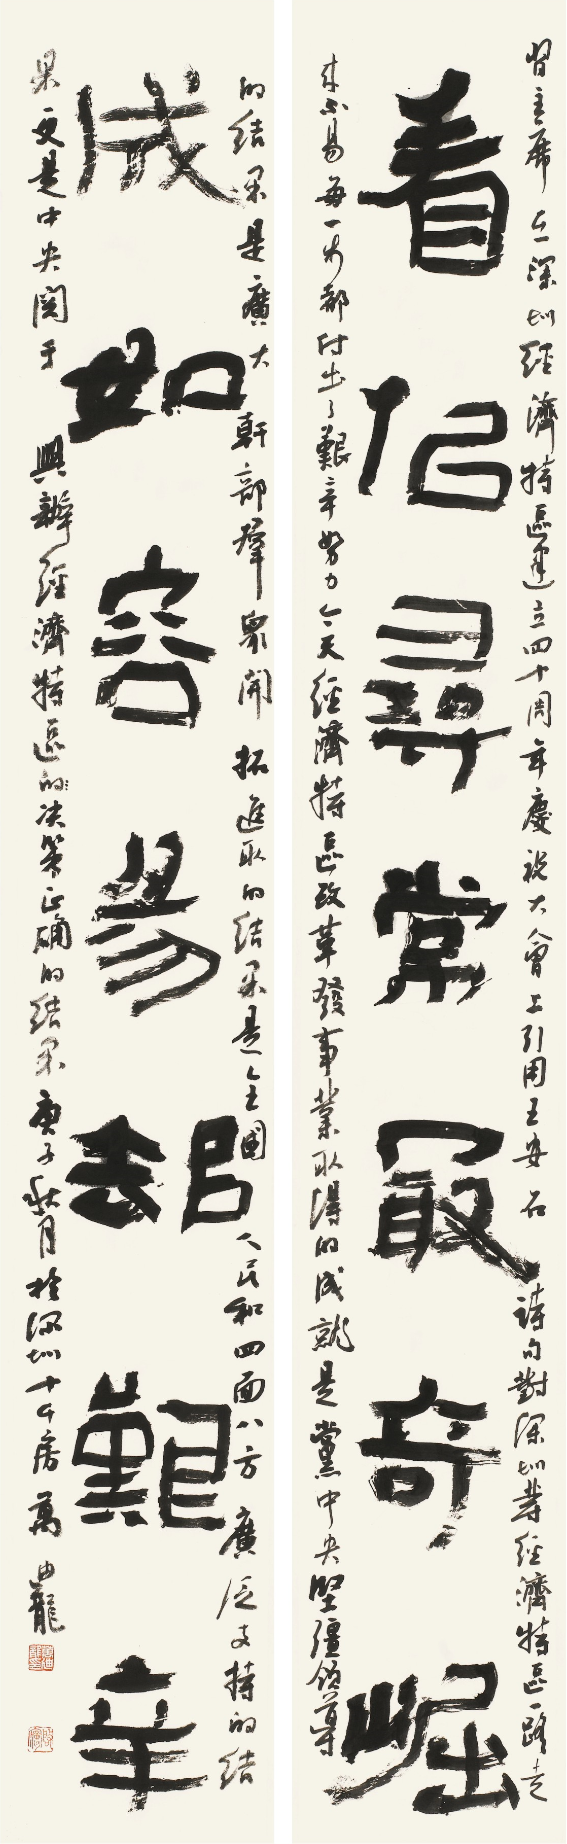 看佀尋常冣奇崛
習主席在深圳經濟特區建立四十周年慶祝大會上引用王安石詩句對深圳等經濟特區一路走
來不易每一步都付出了艱辛努力今天經濟特區改革發事業取得的成就是黨中央堅彊領導
成如容易却艱辛
的結果是廣大幹部羣衆開拓進取的結果是全國人民和四面八方廣泛支持的結
果更是中央関于興辦經濟特區的决策正确的結果庚子秋月於深圳十 萬 龍